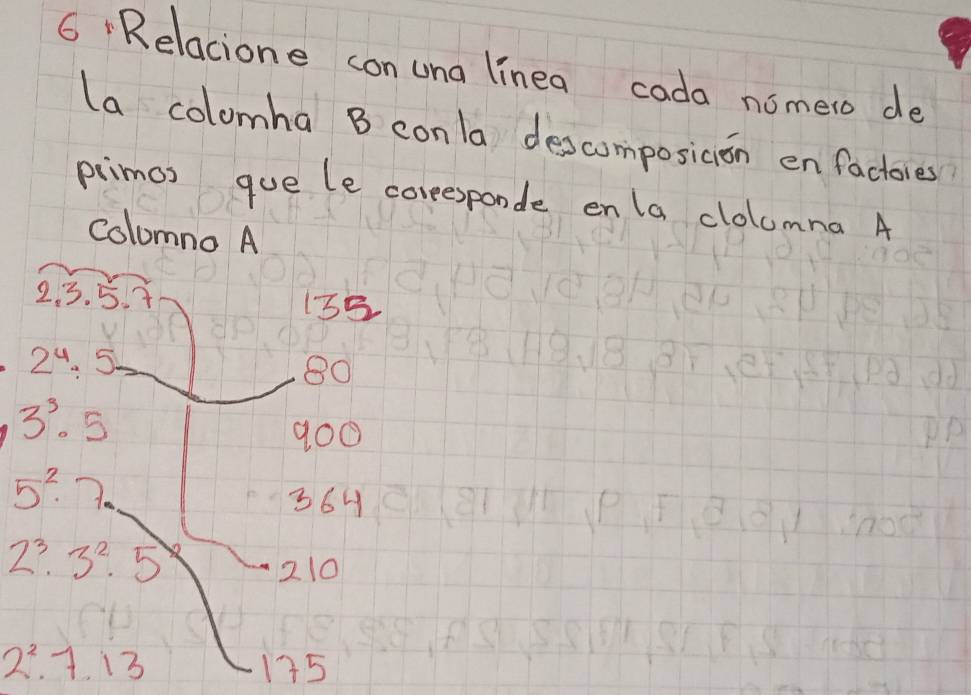 6 Relacione con una línea cada número de
la colomna B con la descomposición en factores
primos que le coreesponde en la clolumna A
Colomna A
2.3.5.7 135
2⁴.5 80
3³.5 900
5².7 364
2³.3².5² 210
2².7.13 175